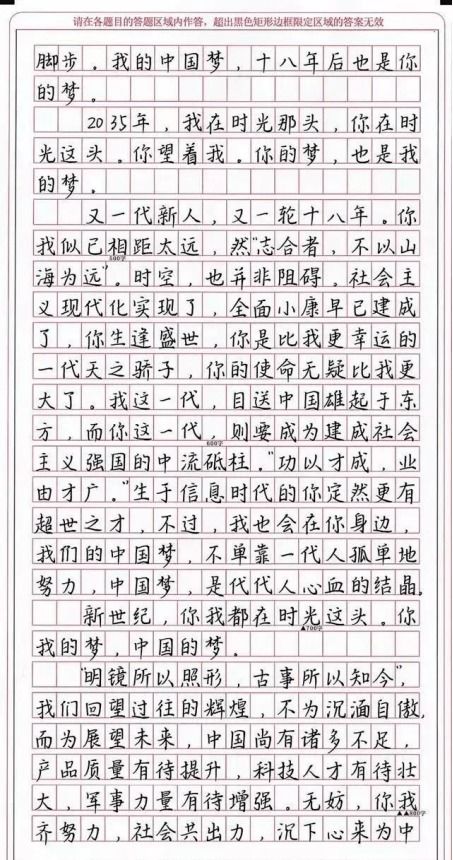 请在各题目的答题区域内作答，超出黑色矩形边框限定区域的答案无效
脚步。我的中国梦，十八年后也是你
的梦。
2035年，我在时光那头，你在时
光这头。你望着我。你的梦，也是我
的梦。
又一代新人，又一轮十八年。你
我似已相距太远，然“志合者，不以山
500字
海为远”。时空，也并非阻碍。社会主
义现代化实现了，全面小康早已建成
了，你生逢盛世，你是比我更幸运的
一代天之骄子，你的使命无疑比我更
大了。我这一代，目送中国雄起于东
方，而你这一代，则要成为建成社会
600字
主义强国的中流砥柱。“功以才成，业
由才广。”生于信息时代的你定然更有
超世之才，不过，我也会在你身边，
我们的中国梦，不单靠一代人孤单地
努力，中国梦，是代代人心血的结晶。
新世纪，你我都在时光这头。你
▲700字
我的梦，中国的梦。
“明镜所以照形，古事所以知今”，
我们回望过往的辉煌，不为沉湎自傲，
而为展望未来，中国尚有诸多不足，
产品质量有待提升，科技人才有待壮
大，军事力量有待增强。无妨，你我
▲▲800字
齐努力，社会共出力，沉下心来为中